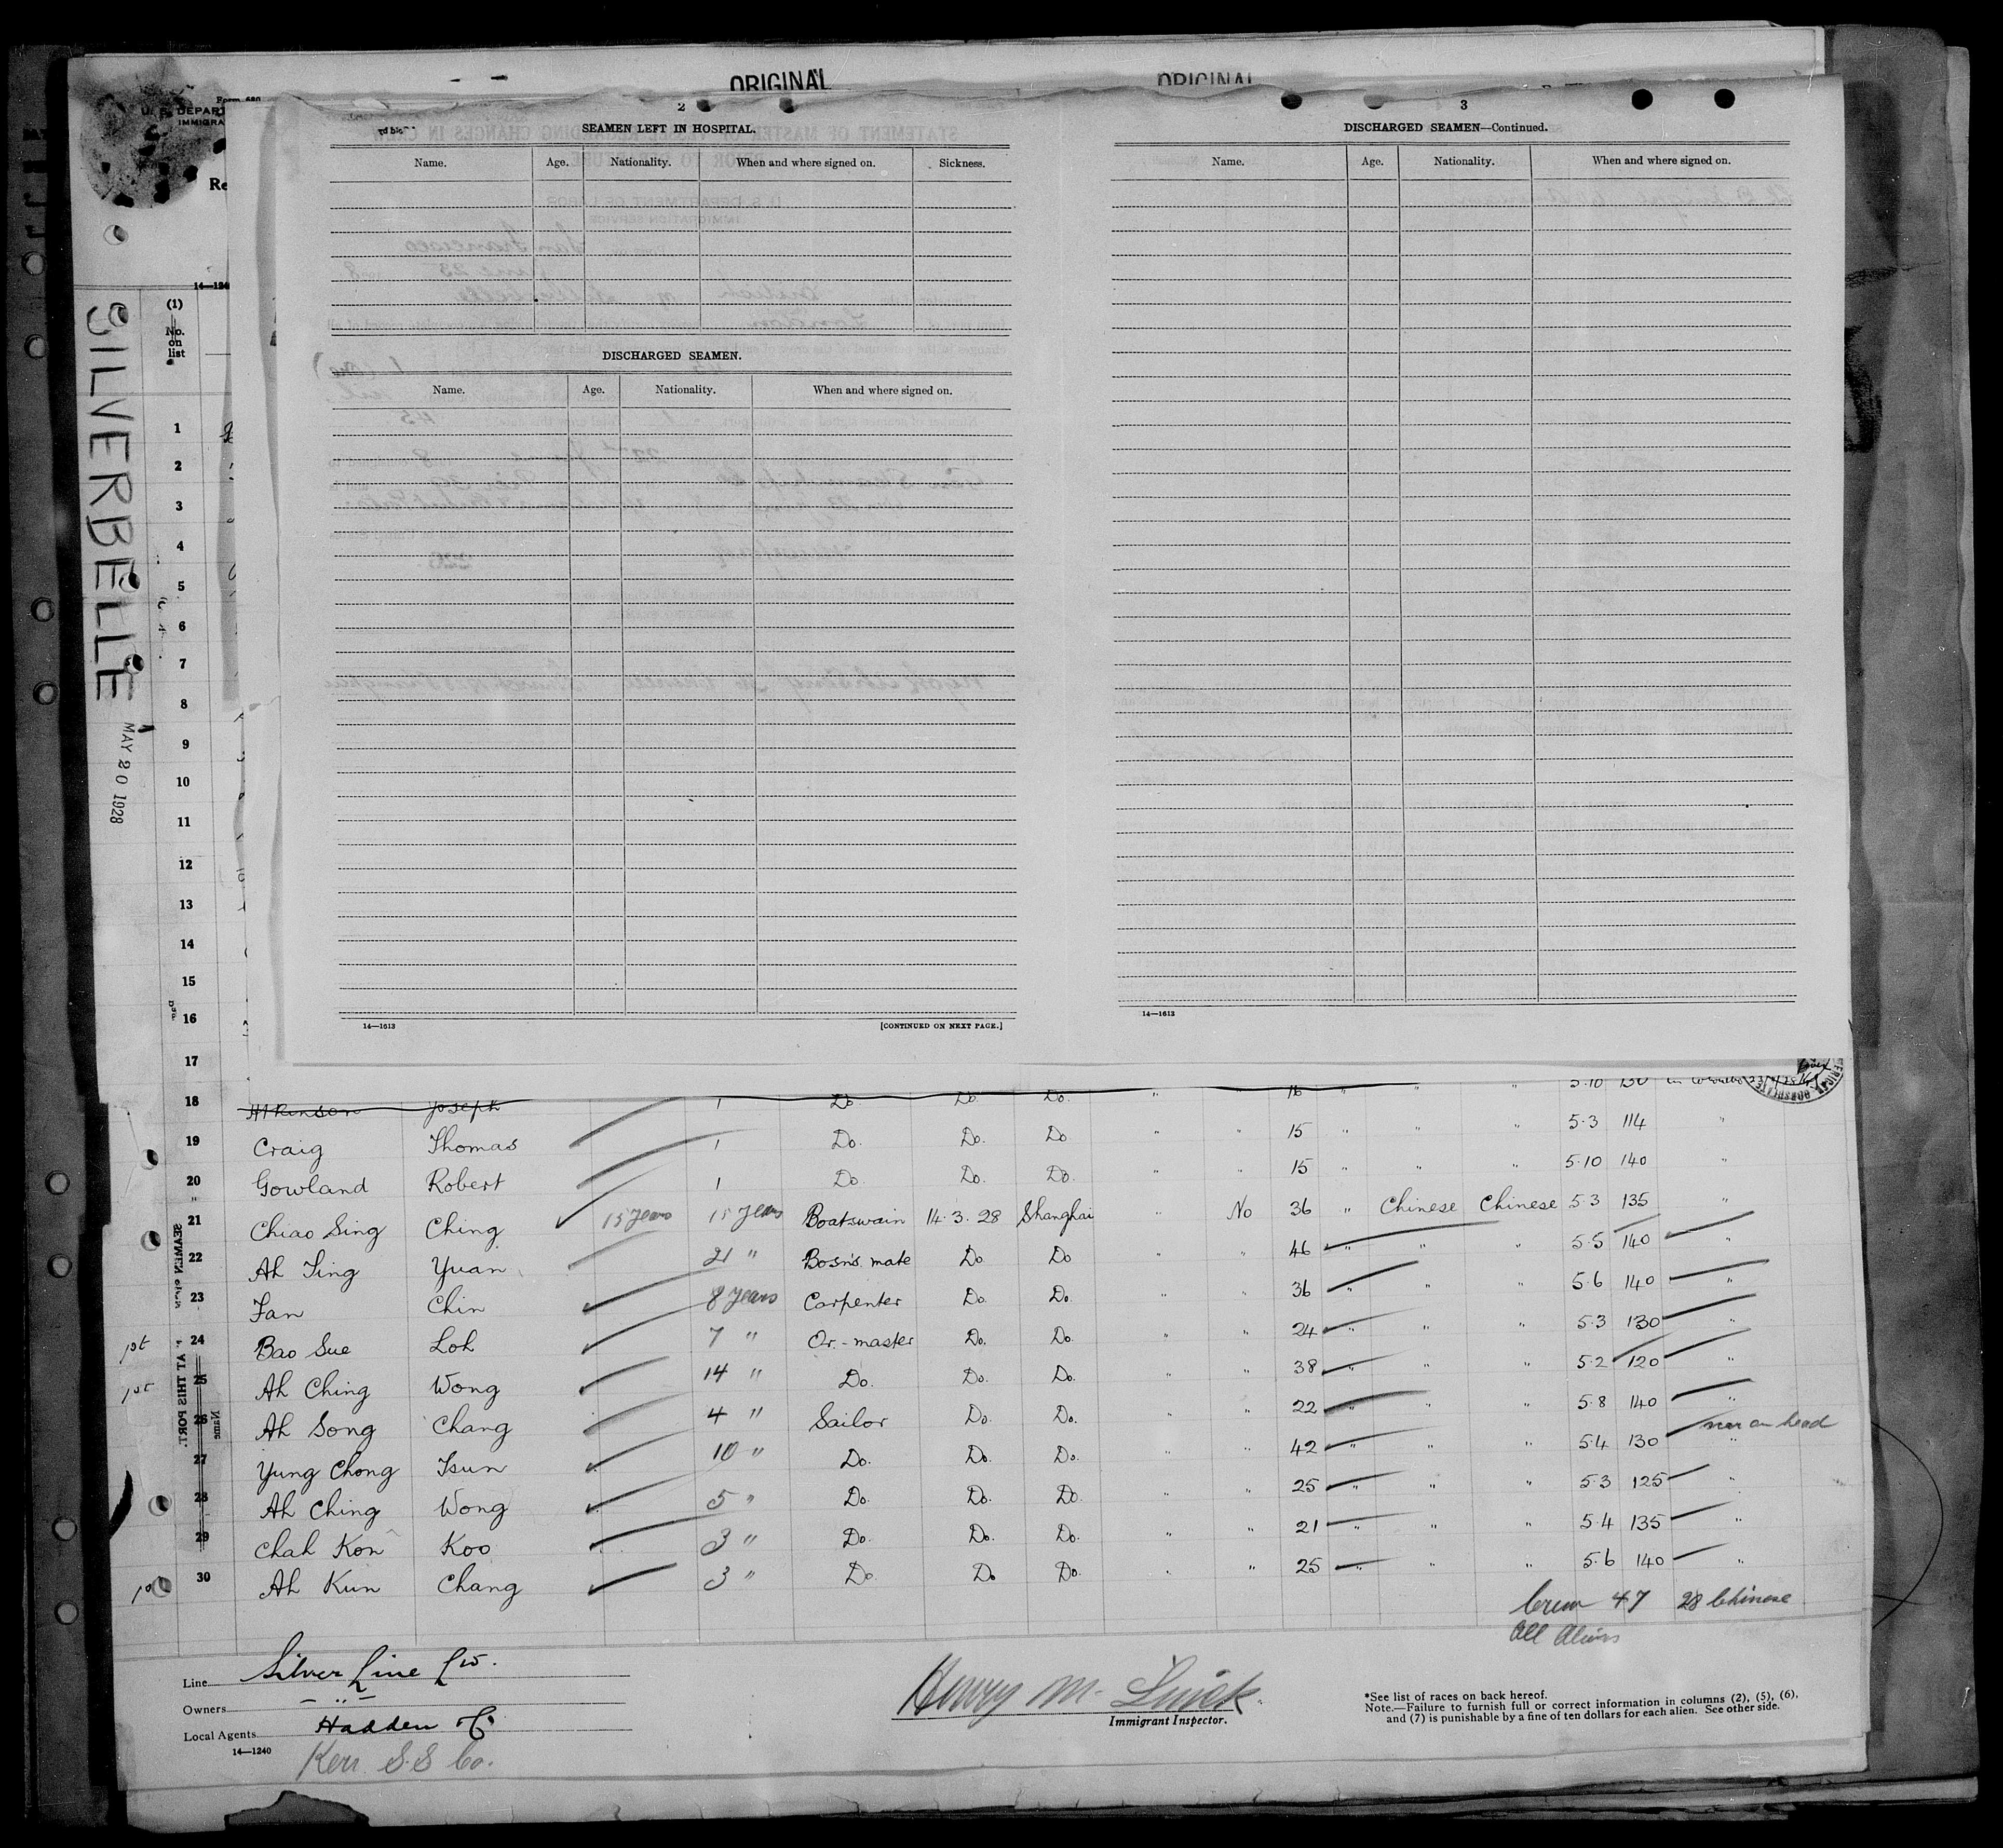 ORIGINAL
ORIGINAL
Form 680
U. S. DEPAR
IMMIGRA
Re
14—1240
(1)
No.
on
list
SILVERBELLE
MAY 20 1928
2
SEAMEN LEFT IN HOSPITAL.
Name. Age. Nationality. When and where signed on. Sickness.
DISCHARGED SEAMEN.
Name. Age. Nationality. When and where signed on.
14—1613 [CONTINUED ON NEXT PAGE.]
3
DISCHARGED SEAMEN—Continued.
Name. Age. Nationality. When and where signed on.
14—1613
1
2
3
4
5
6
7
8
9
10
11
12
13
14
15
16
17
18 Atkinson Joseph 1 Do. Do. Do. " " 16 " " " 5.10 130
19 Craig Thomas 1 Do. Do. Do " " 15 " " " 5.3 114 "
20 Gowland Robert 1 Do. Do. Do. " " 15 " " " 5.10 140 "
21 Chiao Sing Ching 15 years 15 years Boatswain 14.3.28 Shanghai " No 36 " Chinese Chinese 5.3 135 "
22 Ah Ting Yuan 21 " Bosn's mate Do Do " " 46 " " " 5.5 140 "
23 Fan Chin 8 years Carpenter Do. Do. " " 36 " " " 5.6 140 "
1st 24 Bao Sue Loh 7 " Qr.-master Do. Do. " " 24 " " " 5.3 130 "
1st 25 Ah Ching Wong 14 " Do. Do. Do. " " 38 " " " 5.2 120 "
26 Ah Song Chang 4 " Sailor Do. Do. " " 22 " " " 5.8 140 "
27 Yung Chong Tsun 10 " Do. Do. Do. " " 42 " " " 5.4 130 " scar on head
28 Ah Ching Wong 5 " Do. Do. Do. " " 25 " " " 5.3 125 "
29 Chah Kon Koo 3 " Do. Do. Do. " " 21 " " " 5.4 135 "
1st 30 Ah Kun Chang 3 " Do. Do Do. " " 25 " " " 5.6 140 "
Crew 47 28 Chinese
All Aliens
Line Silver Line Ld.
Owners — " —
Local Agents Hadden & Co
14—1240
Kerr S.S Co.
Immigrant Inspector.
*See list of races on back hereof.
Note.—Failure to furnish full or correct information in columns (2), (5), (6),
and (7) is punishable by a fine of ten dollars for each alien. See other side.